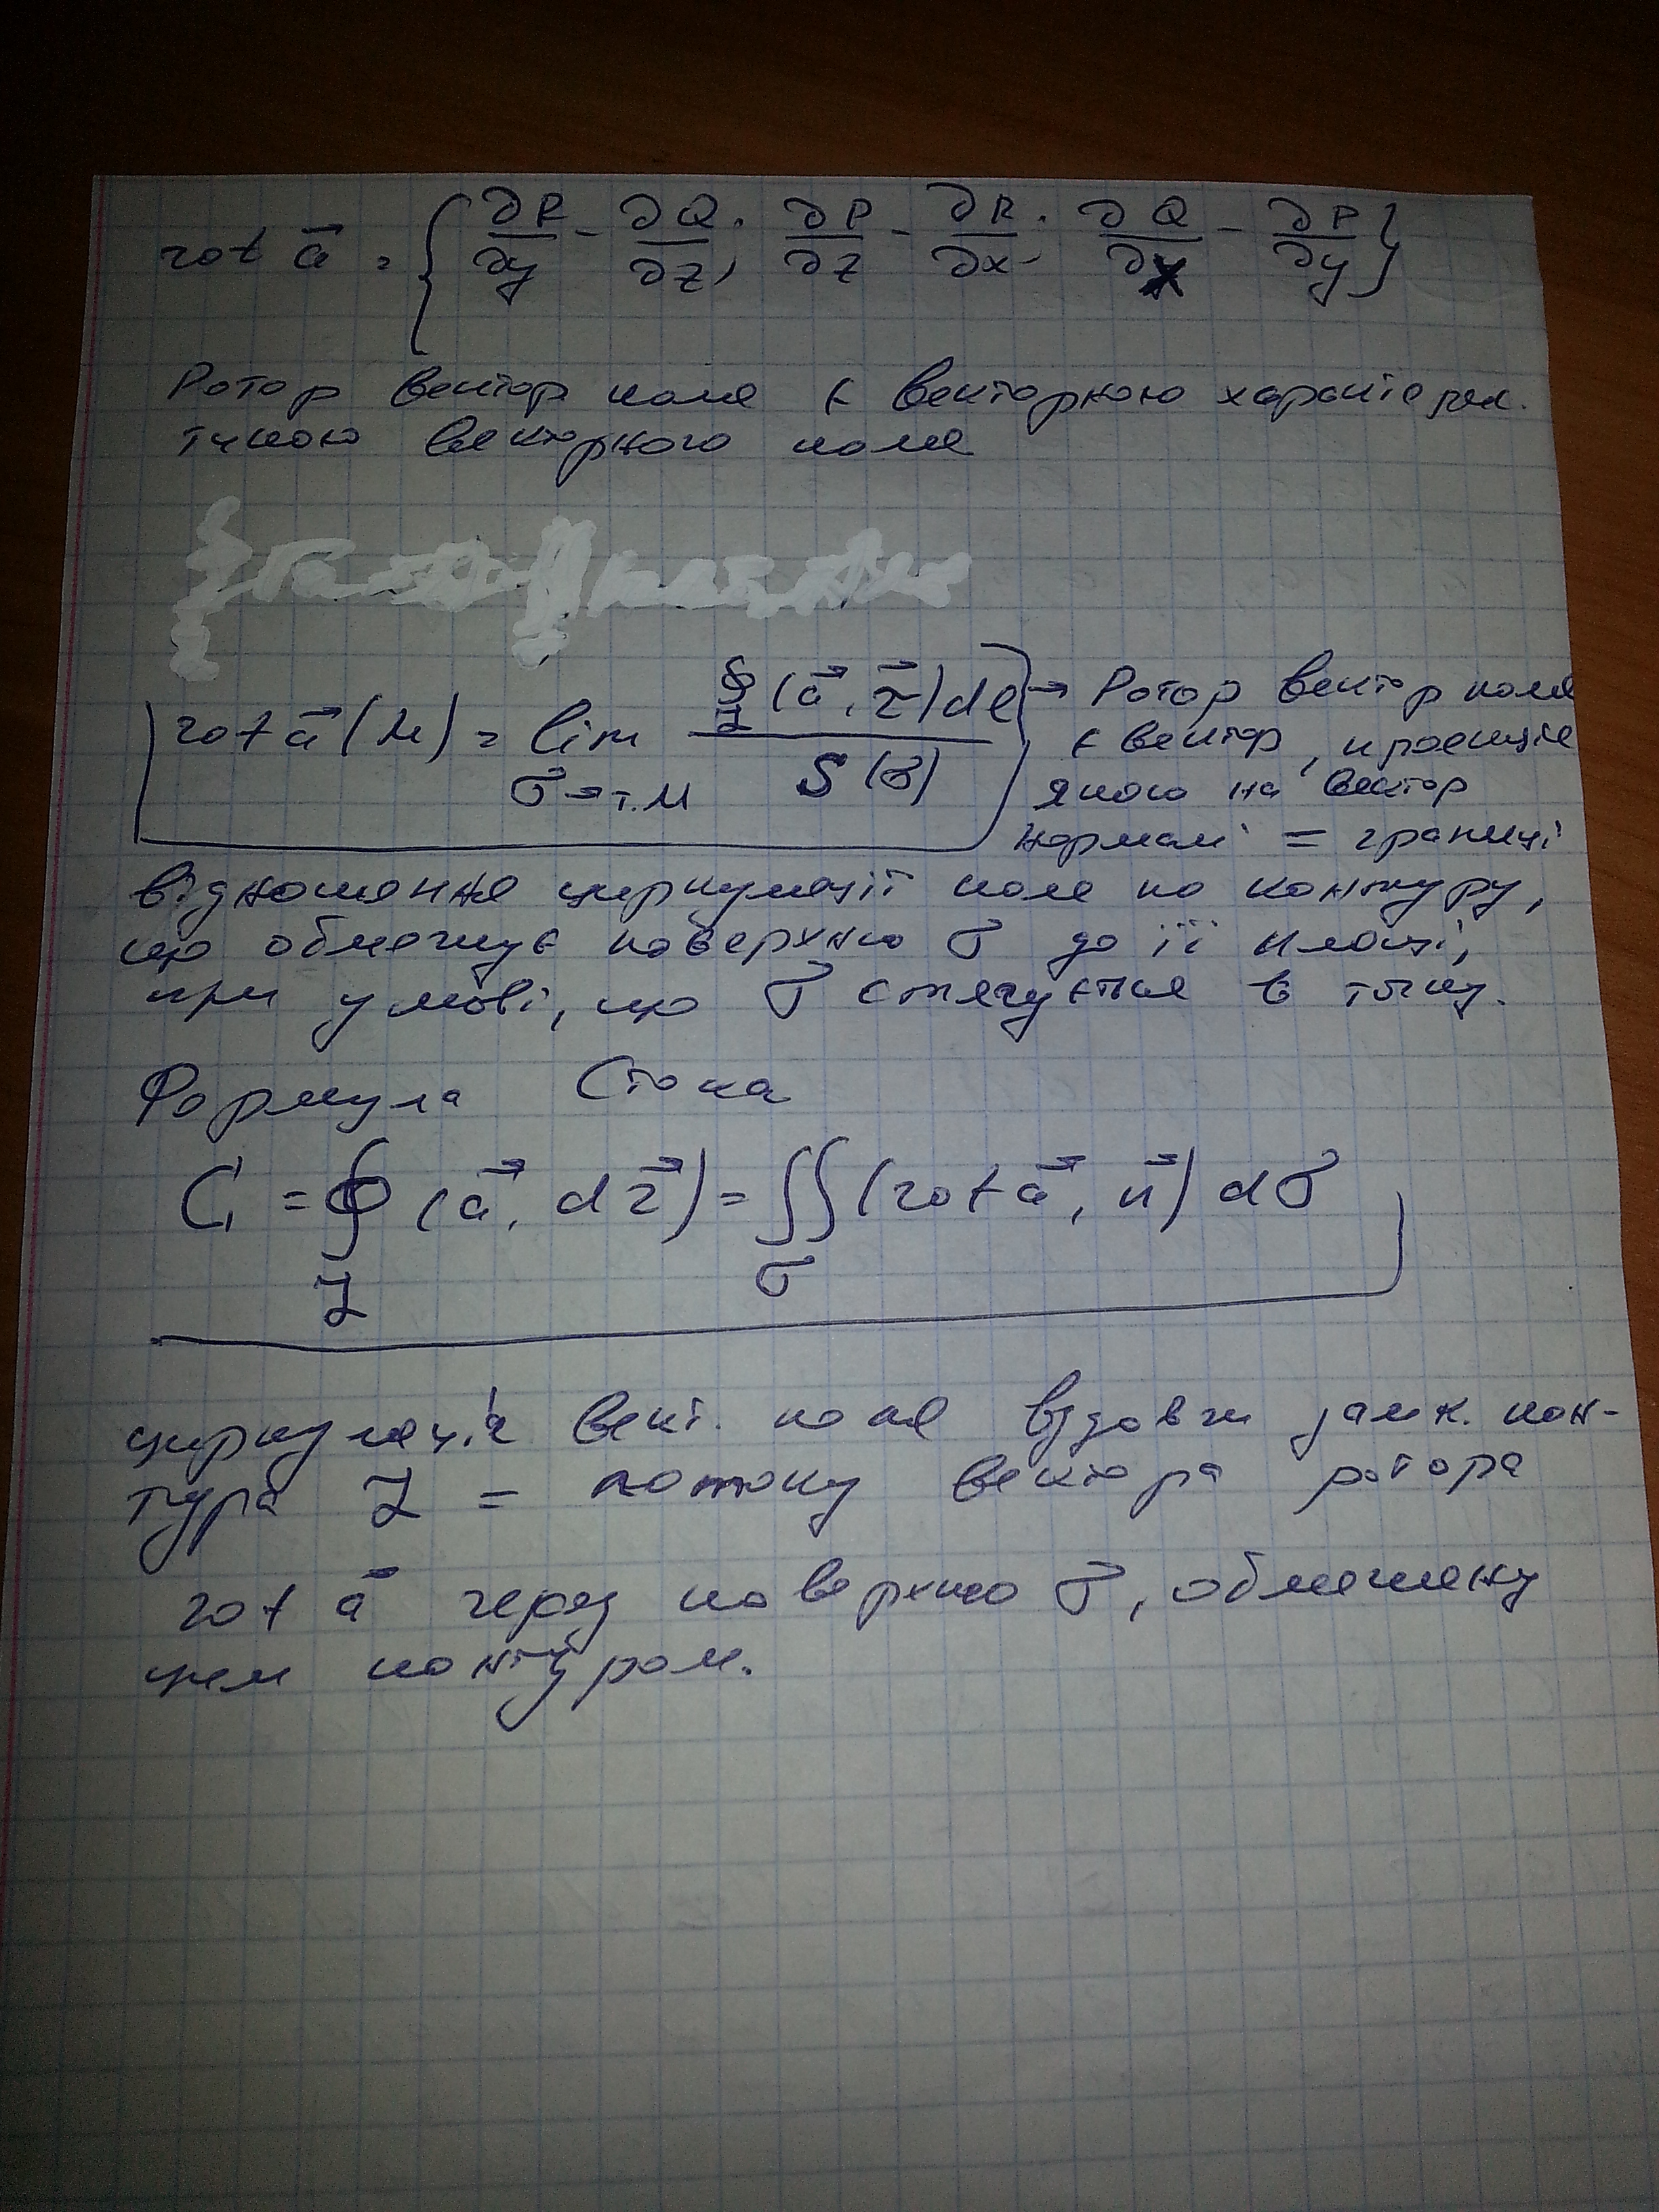 rot a⃗ = { ∂R/∂y - ∂Q/∂z, ∂P/∂z - ∂R/∂x, ∂Q/∂x - ∂P/∂y }
Ротор вектор поля є векторною характерис-
тикою векторного поля
rot a⃗ (M) = lim σ→т.M ∮L (a⃗, τ⃗) dl / S(σ) → Ротор вектор поля
є вектор, проекція
якого на вектор
нормалі = границі
відношення циркуляції поля по контуру,
що обмежує поверхню σ до її площі,
при умові, що σ стягується в точку.
Формула Стокса
C = ∮L (a⃗, dr⃗) = ∬σ (rot a⃗, n⃗) dσ
циркуляція вект. поля вздовж замк. кон-
тура L = потоку вектора ротора
rot a⃗ через поверхню σ, обмежену
цим контуром.